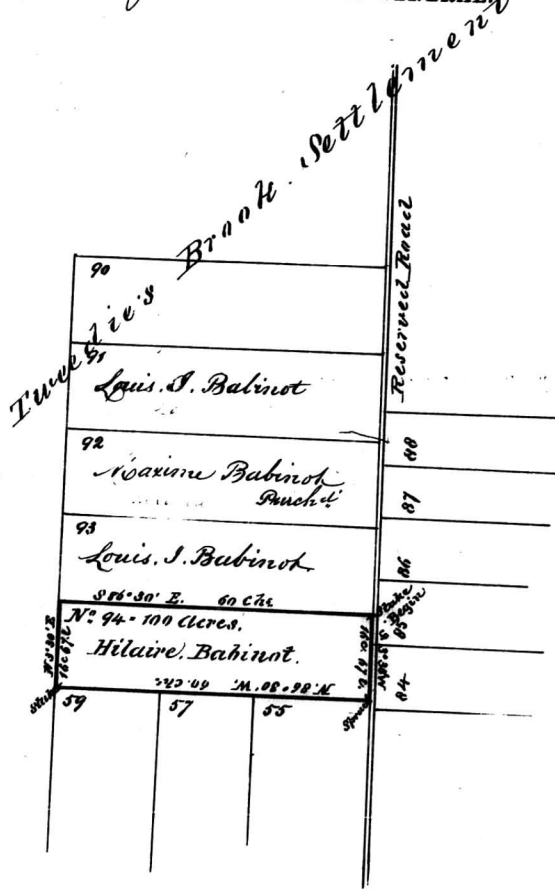 Tweedie's Brook Settlement
Reserved Road
90
91
Louis. I. Babinot
92
Maxime Babinot
Purchd.
93
Louis. I. Babinot.
S 86° 30' E. 60 Chs
No. 94 = 100 Acres.
Hilaire. Babinot.
N. 86° 30' W. 60 chs.
N 3° 30' E
16c 67 L
Stake
Begin
16c. 67 L.
S 3° 30' W
Stake
Spruce
59
57
55
88
87
86
85
84